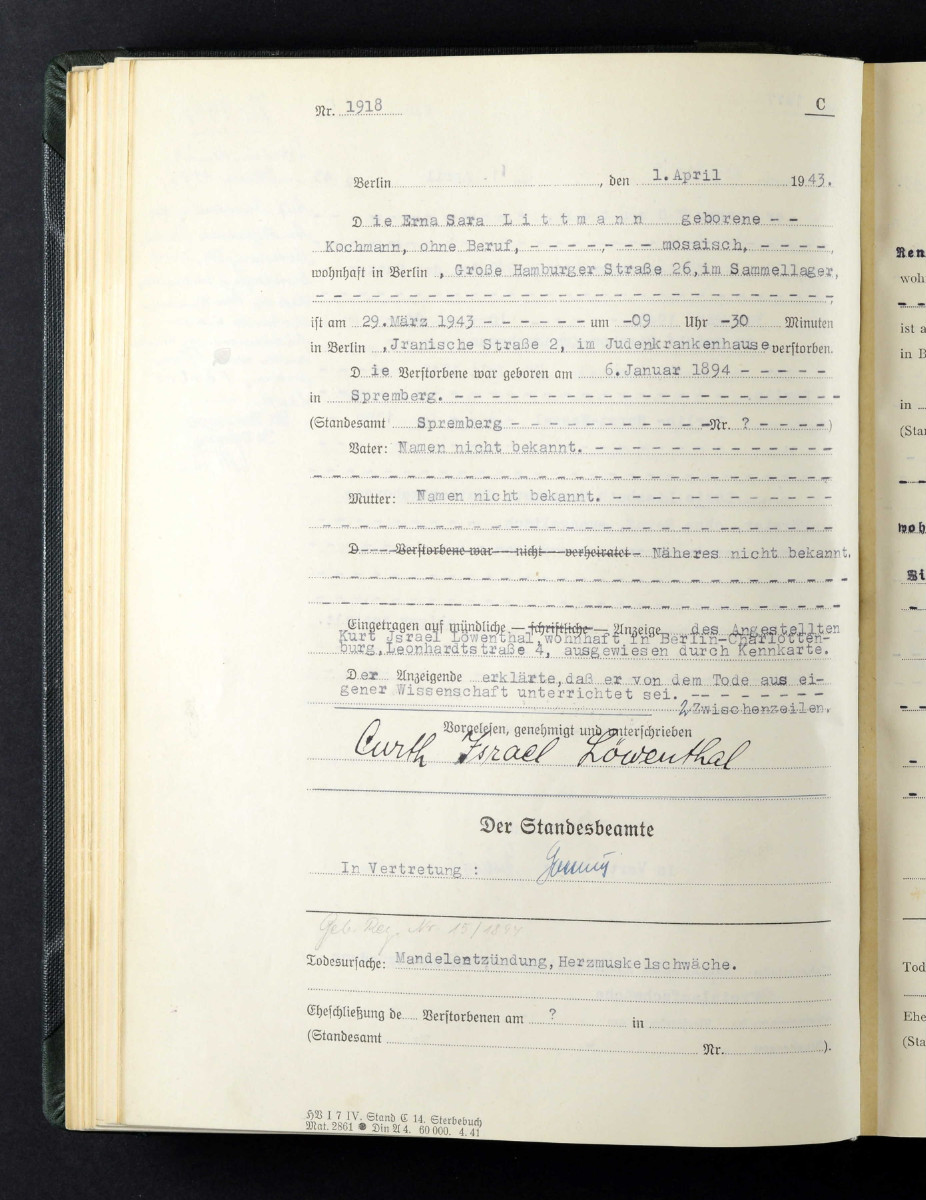 Nr. 1918 C
Berlin , den 1. April 1943.
Die Erna Sara Littmann geborene - -
Kochmann, ohne Beruf, - - - -,- - - mosaisch, - - - -,
wohnhaft in Berlin , Große Hamburger Straße 26, im Sammellager,
- - - - - - - - - - - - - - - - - - - - - - - - - - - -,
ist am 29. März 1943 - - - - - - um -09 Uhr -30 Minuten
in Berlin , Jranische Straße 2, im Judenkrankenhause verstorben.
Die Verstorbene war geboren am 6. Januar 1894 - - - - -
in Spremberg. - - - - - - - - - - - - - - - - - - - - - -
(Standesamt Spremberg - - - - - - - - - - - Nr. ? - - - -)
Vater: Namen nicht bekannt. - - - - - - - - - - - - -
- - - - - - - - - - - - - - - - - - - - - - - - - - - -
Mutter: Namen nicht bekannt. - - - - - - - - - - - -
- - - - - - - - - - - - - - - - - - - - - - - - - - - -
D--- Verstorbene war -- nicht -- verheiratet - Näheres nicht bekannt.
- - - - - - - - - - - - - - - - - - - - - - - - - - - -
- - - - - - - - - - - - - - - - - - - - - - - - - - - -
Eingetragen auf mündliche — schriftliche — Anzeige des Angestellten
Kurt Jsrael Löwenthal, wohnhaft in Berlin-Charlotten-
burg, Leonhardtstraße 4, ausgewiesen durch Kennkarte.
Der Anzeigende erklärte, daß er von dem Tode aus ei-
gener Wissenschaft unterrichtet sei. - - - - - - - -
2 Zwischenzeilen.
Vorgelesen, genehmigt und unterschrieben
Curth Israel Löwenthal
Der Standesbeamte
In Vertretung :
Geb. Reg. Nr. 15/1894
Todesursache: Mandelentzündung, Herzmuskelschwäche.
Eheschließung de Verstorbenen am ? in
(Standesamt Nr. ).
HB I 7 IV. Stand C 14. Sterbebuch
Mat. 2861 ● Din A 4. 60 000. 4. 41
Ren
woh
ist a
in B
in
(Stan
woh
Tod
Ehe
(Sta